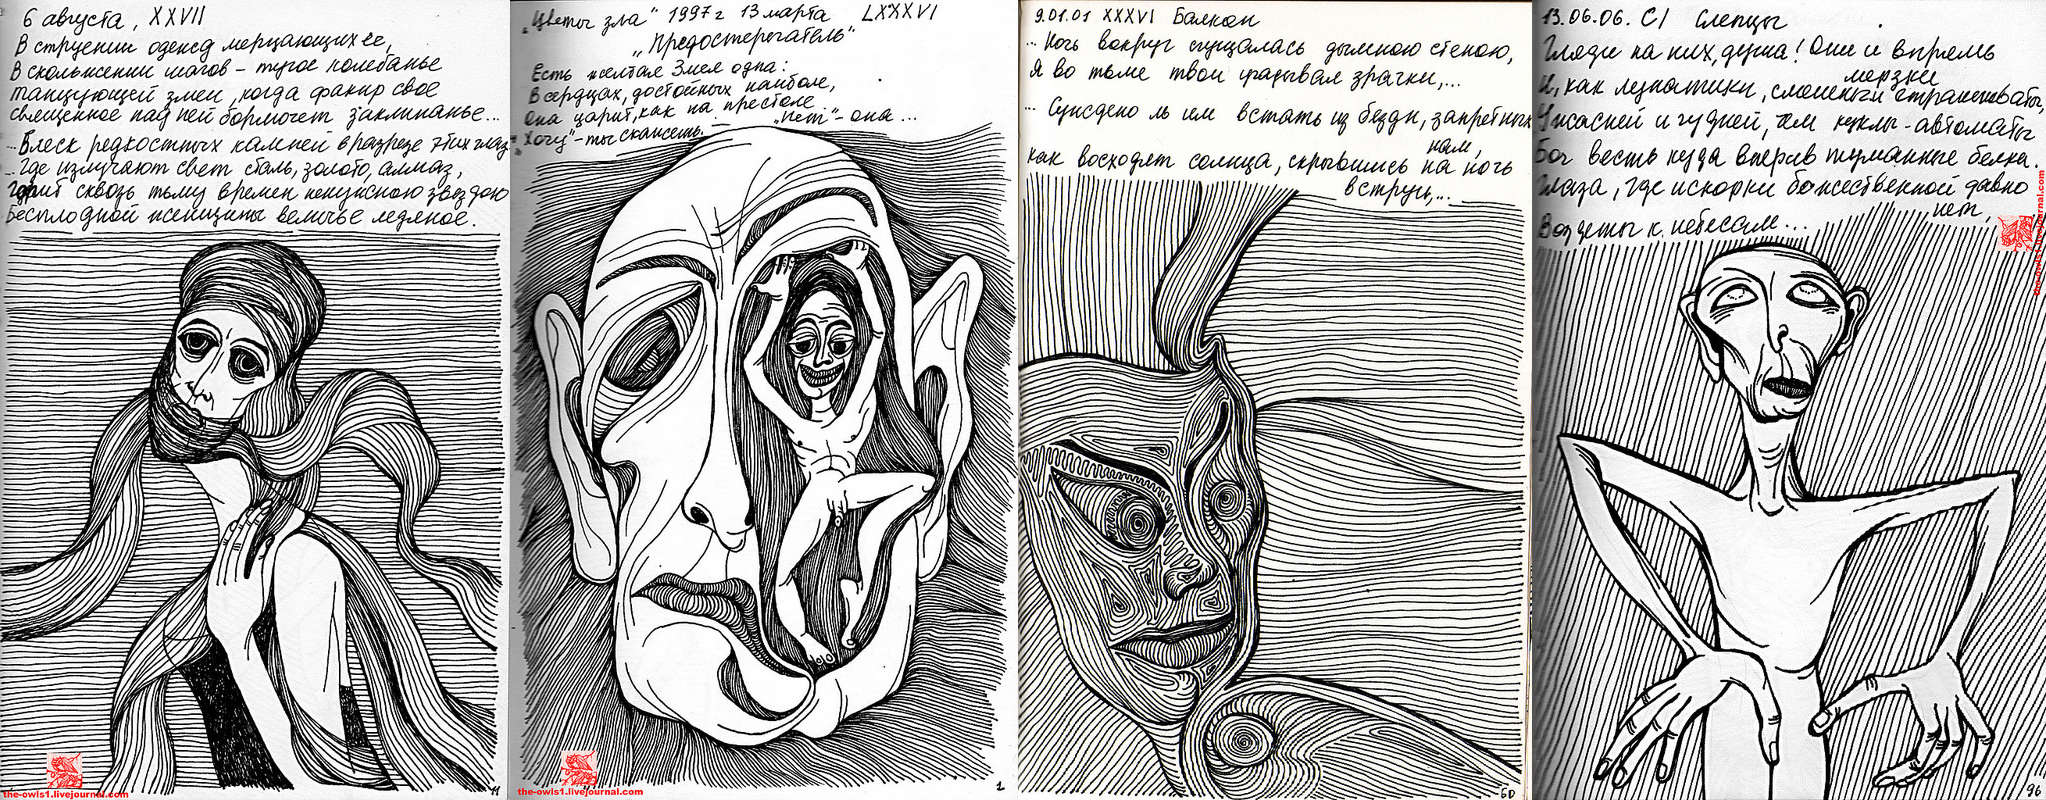 6 августа, XXVII
В струении одежд мерцающих ее,
В скольжении шагов - тугое колебанье
танцующей змеи, когда факир свое
священное над ней бормочет заклинанье...
...Блеск редкостных камней в разрезе этих глаз
...где излучают свет сталь, золото, алмаз,
горит сквозь тьму времен ненужною звездою
бесплодной женщины величье ледяное.
11
the-owls1.livejournal.com
„Цветы зла" 1997г 13 марта LXXXVI
„Предостерегатель"
Есть желтая Змея одна:
В сердцах, достойных наиболе,
она царит, как на престоле...
„Хочу"-ты скажешь. - „нет"- она...
1
the-owls1.livejournal.com
9.01.01 XXXVI Балкон
... Ночь вокруг сгущалась дымною стеною,
Я во тьме твои угадывал зрачки,...
... Суждено ль им встать из бездн, запретных
нам,
как восходят солнца, скрывшись на ночь
в струи,...
60
13.06.06. CI Слепцы
Гляди на них, душа! Они и впрямь
мерзки
И, как лунатики, смешны и странноваты,
Ужасней и чудней, чем куклы-автоматы
Бог весть куда вперив туманные белки.
Глаза, где искорки божественной давно
нет,
Воздеты к небесам...
96
the-owls1.livejournal.com